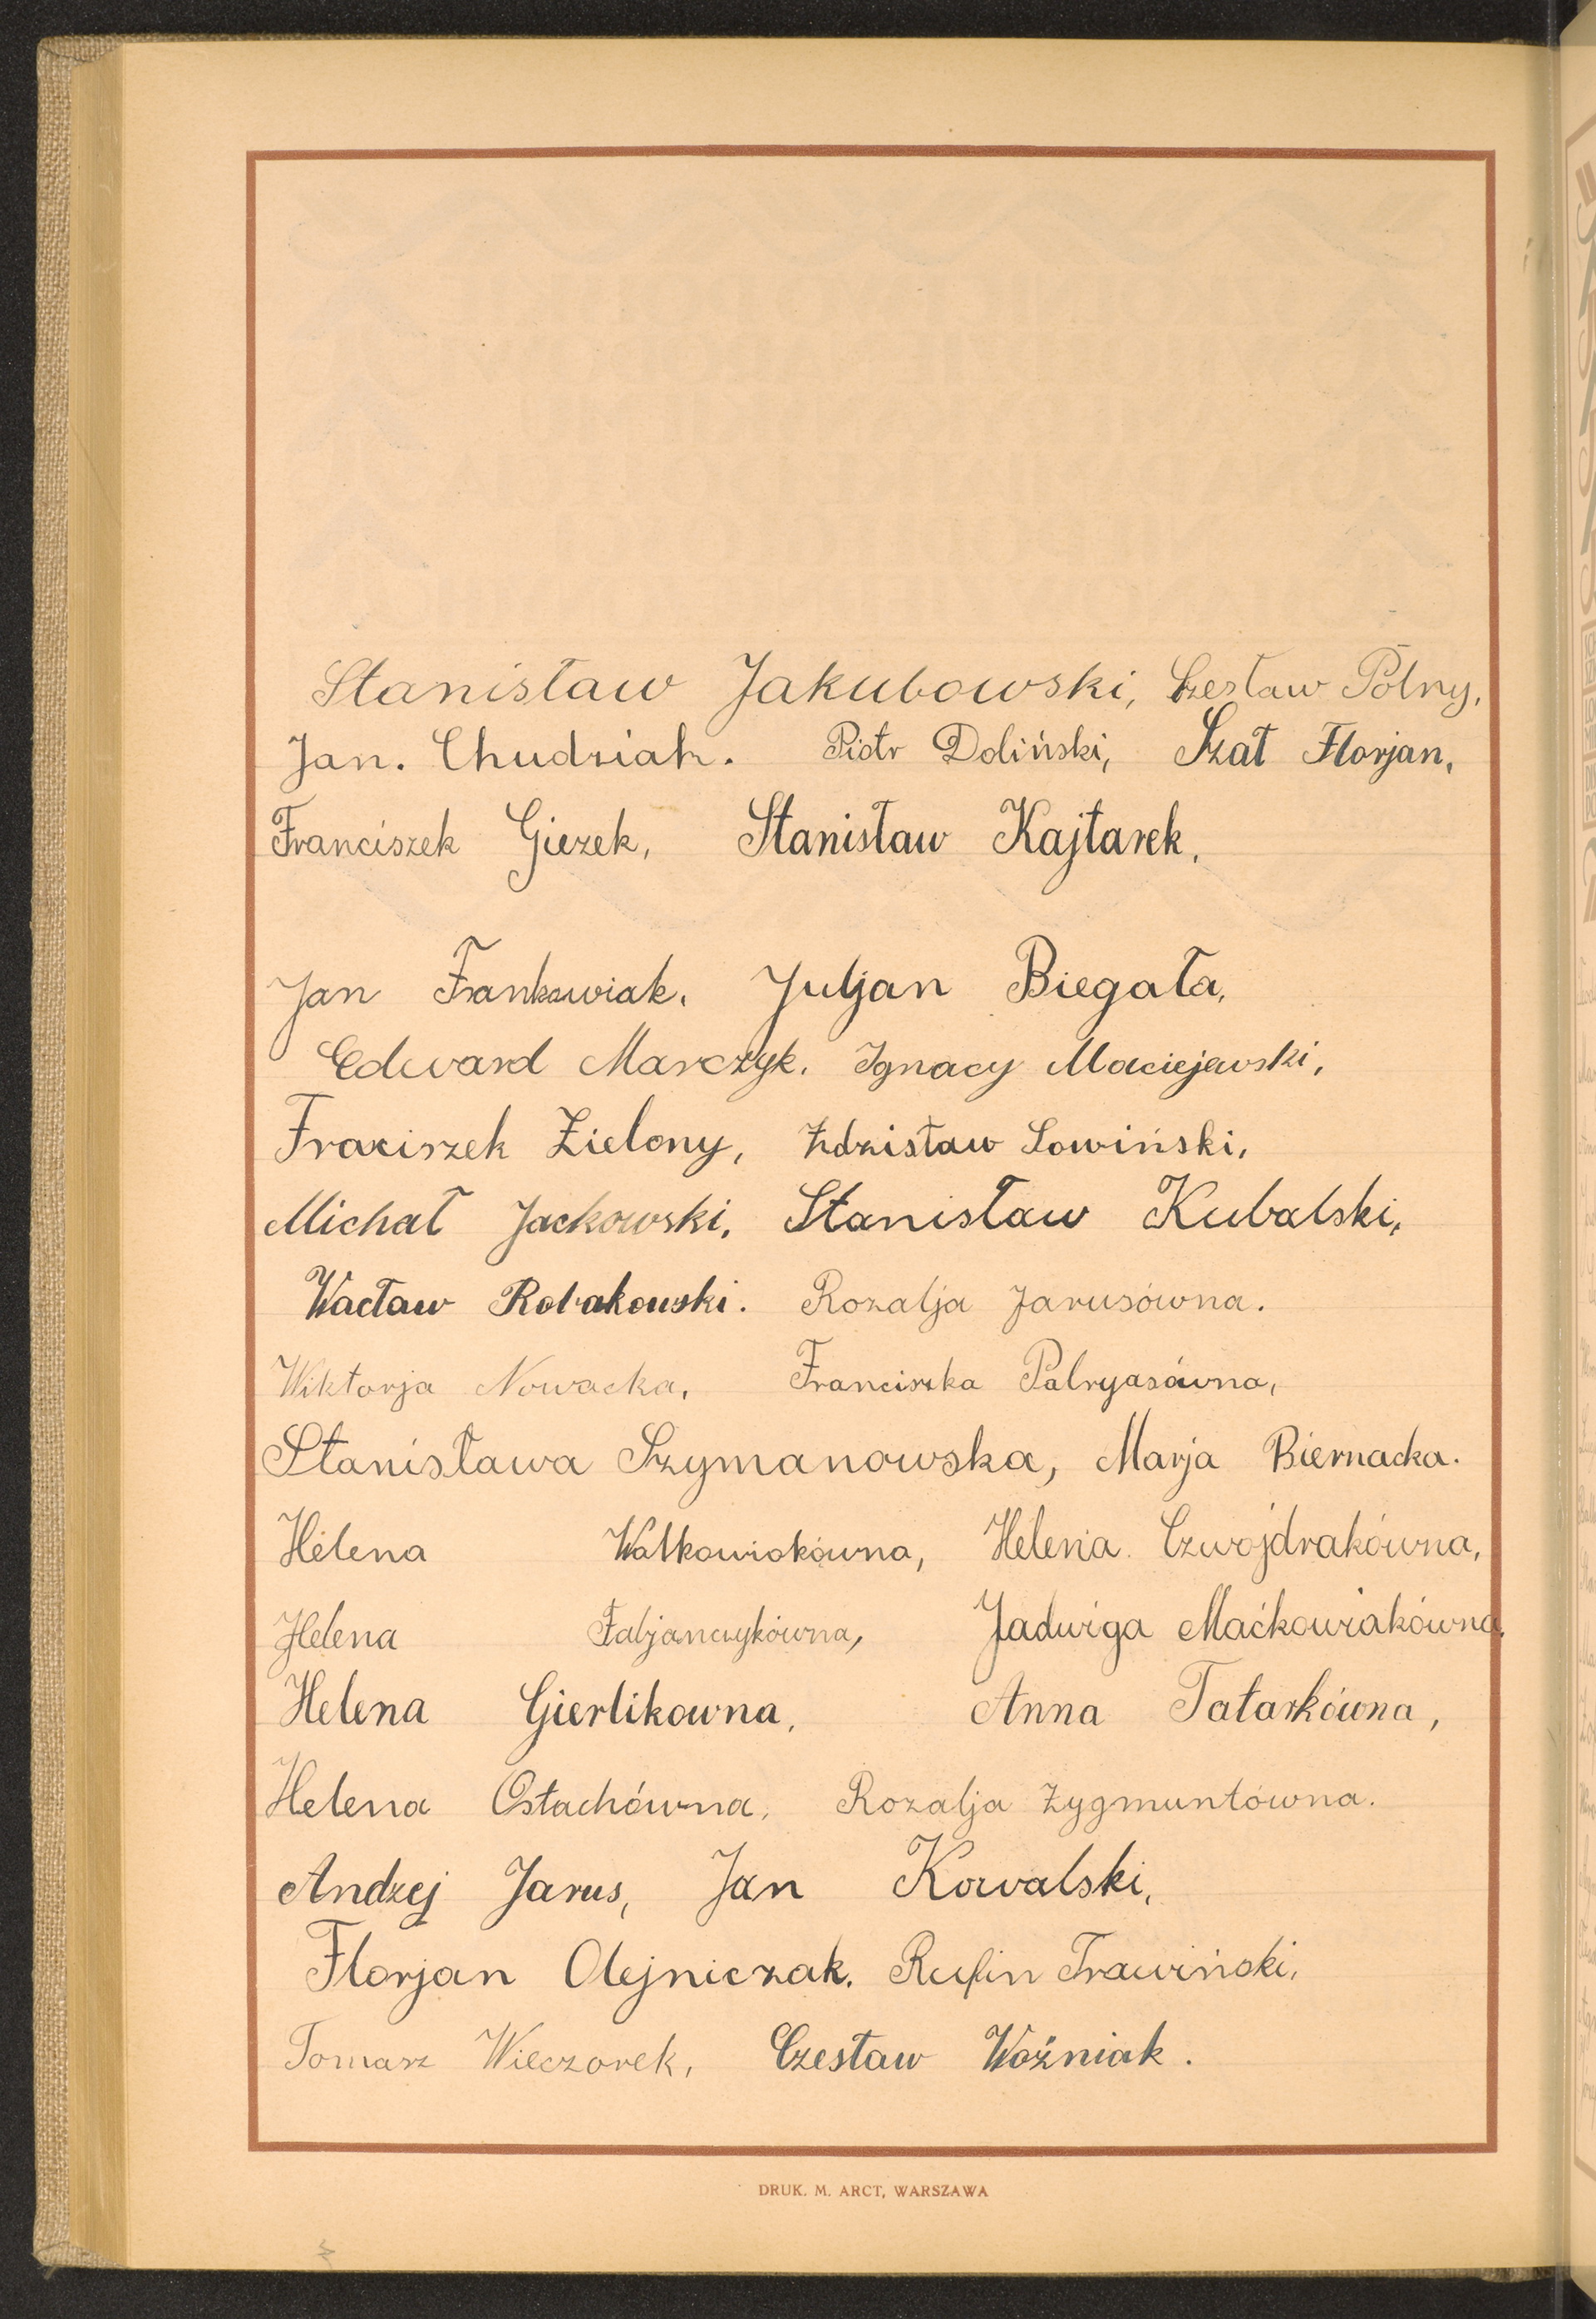 Stanisław Jakubowski, Czesław Polny,
Jan. Chudziak. Piotr Doliński, Szał Florjan,
Franciszek Giezek, Stanisław Kajtarek,
Jan Frankowiak, Juljan Biegała,
Edward Marczyk, Ignacy Maciejewski,
Fraciszek Zielony, Zdzisław Sowiński,
Michał Jackowski, Stanisław Kubalski,
Wacław Robakowski. Rozalja Jarusówna.
Wiktorja Nowacka, Franciszka Palryasówna,
Stanisława Szymanowska, Marja Biernacka.
Helena Walkowiakówna, Helena Czwojdrakówna,
Helena Fabjanczykówna, Jadwiga Maćkowiakówna,
Helena Gierlikowna, Anna Tatarkówna,
Helena Ostachówna, Rozalja Zygmuntówna.
Andzej Jarus, Jan Kowalski,
Florjan Olejniczak, Rufin Trawiński,
Tomasz Wieczorek, Czesław Woźniak.
DRUK. M. ARCT, WARSZAWA